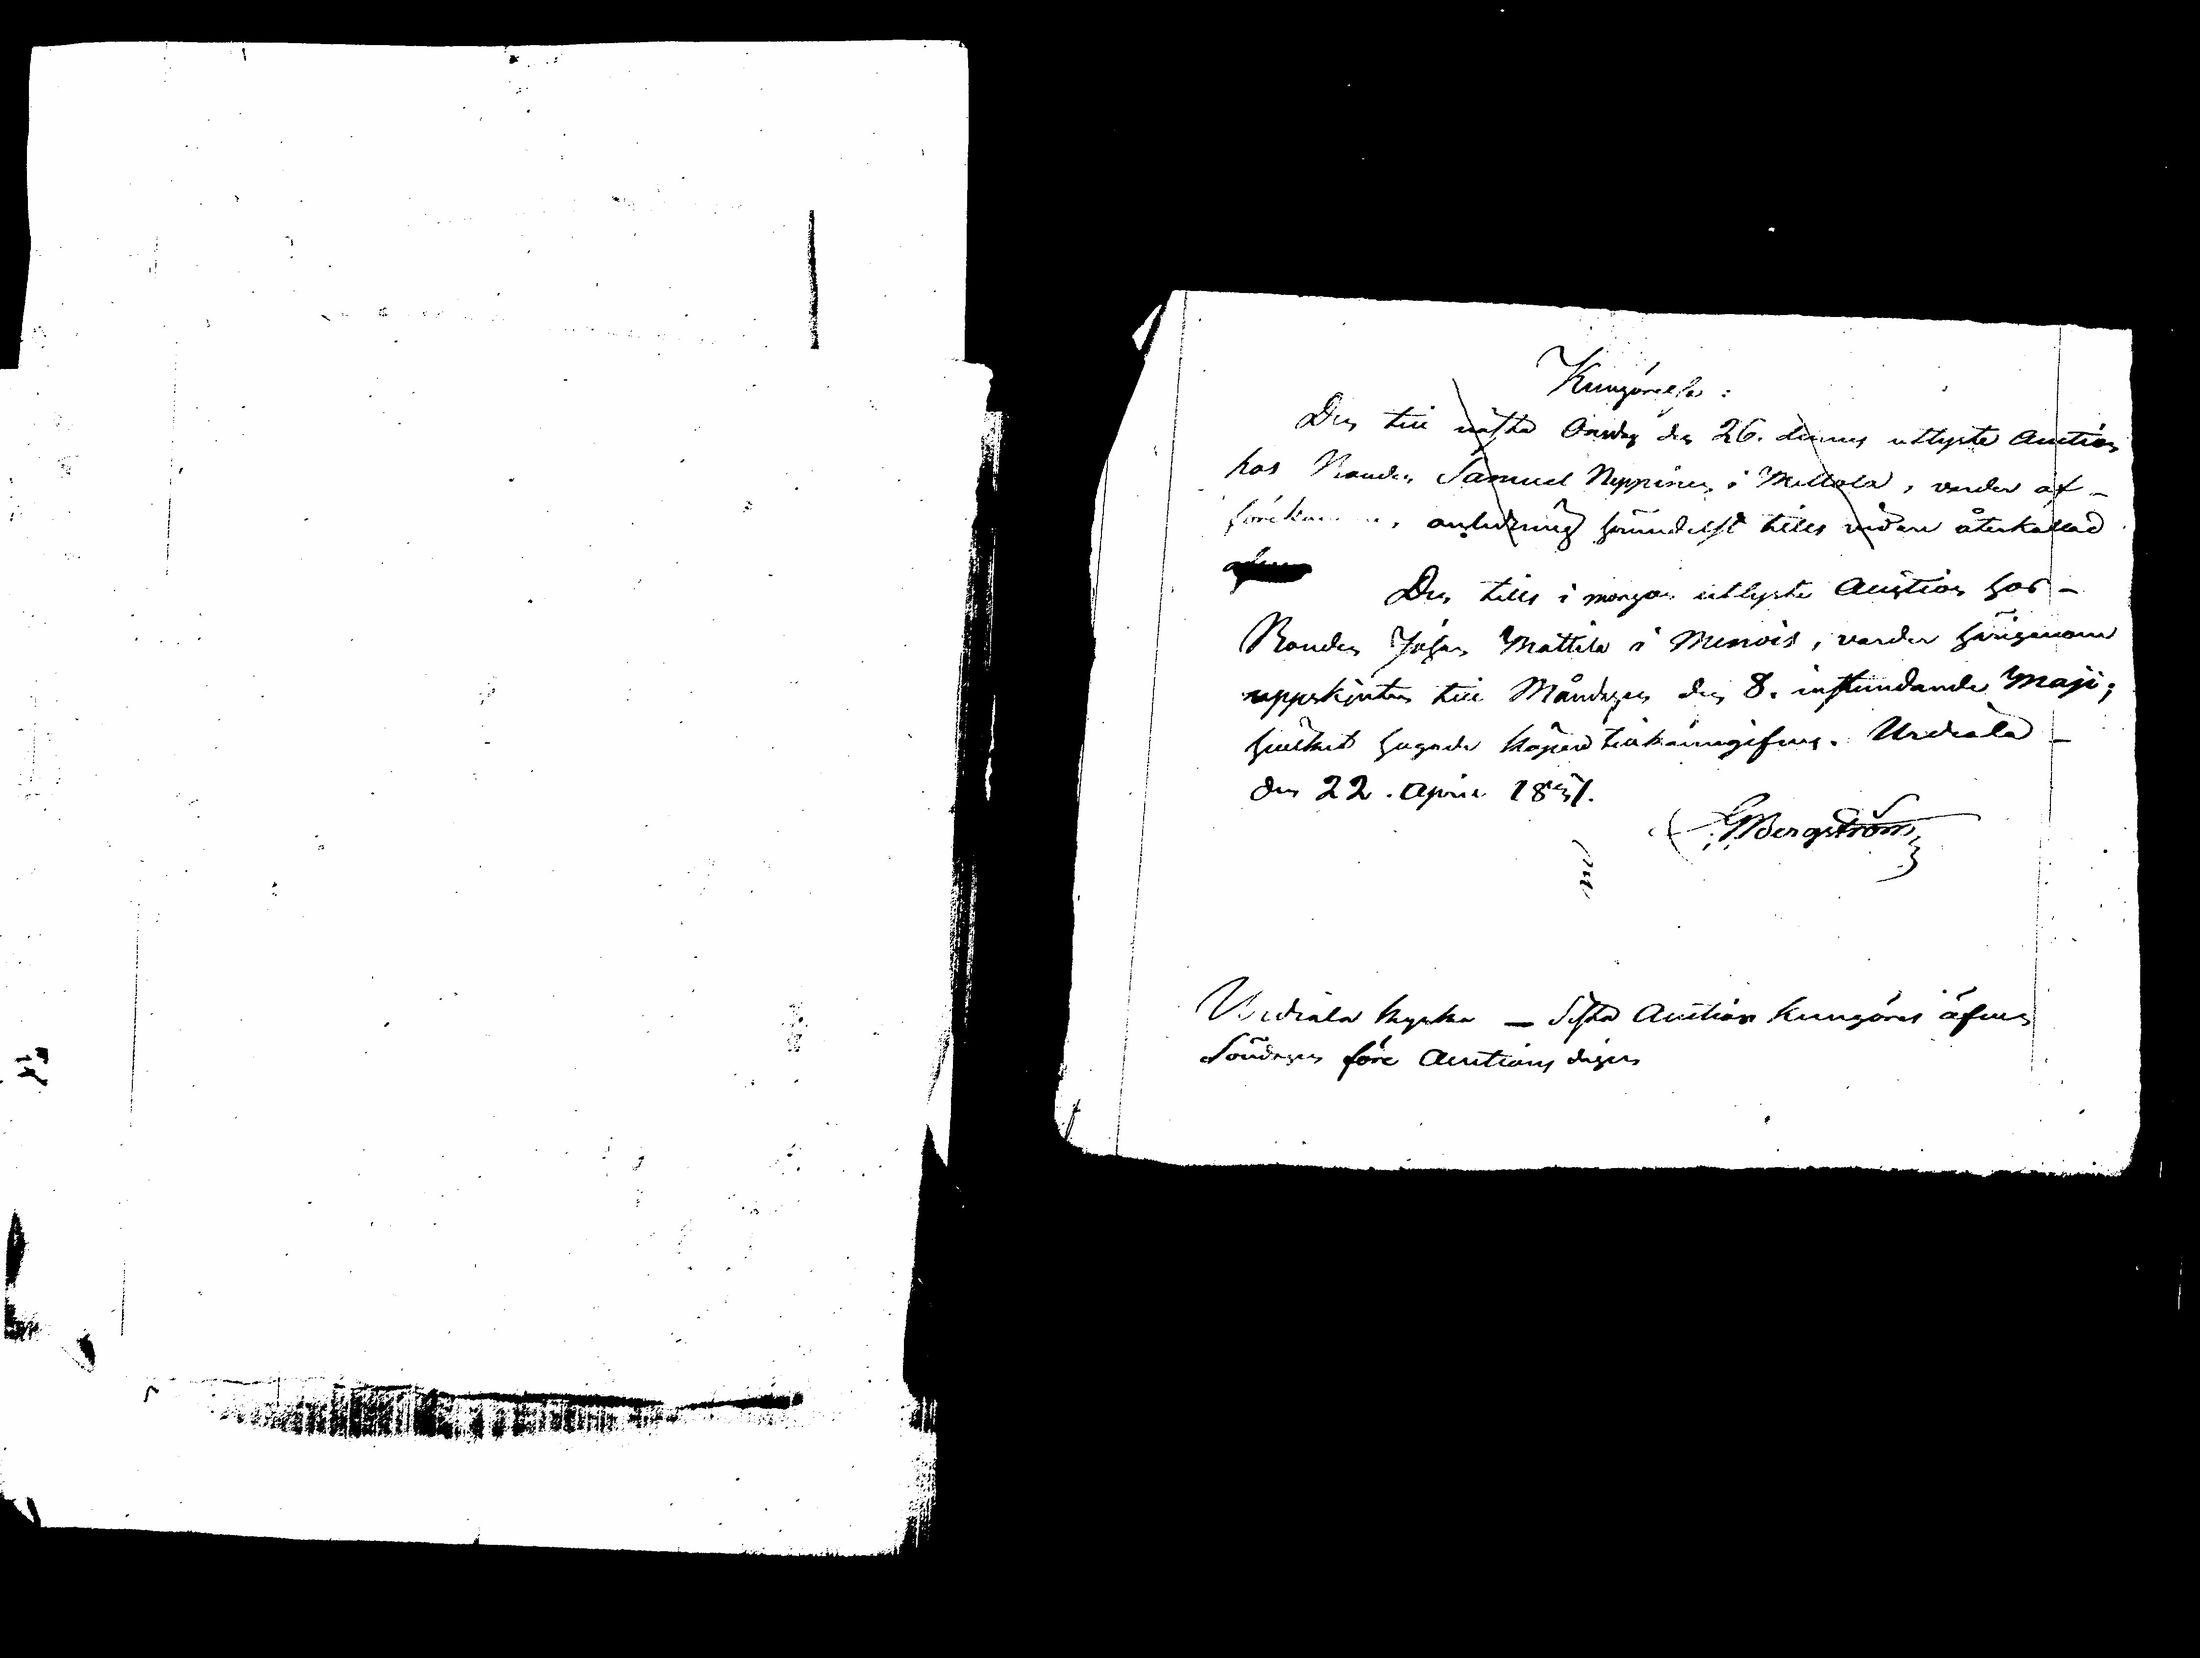 Kungörelse:
Den till nästa Onsdag den 26. dennes utlyste Auction
hos Bonden Samuel Neppinen i Mellola, varder af -
förekommen anledning hämedelst tills vidare återkallad
Den tills i morgon utlyste Auction hos -
Bonden Johan Mattila i Menois, varder härigenom
uppskjuten till Måndagen den 8. instundande Maji;
hvilket hugade köpare tillkännagifves. Urdiala -
den 22. April 1851.
GBergström
Urdiala kyrka — Sista Auction kungöres äfven
Söndagen före Auctions dagen